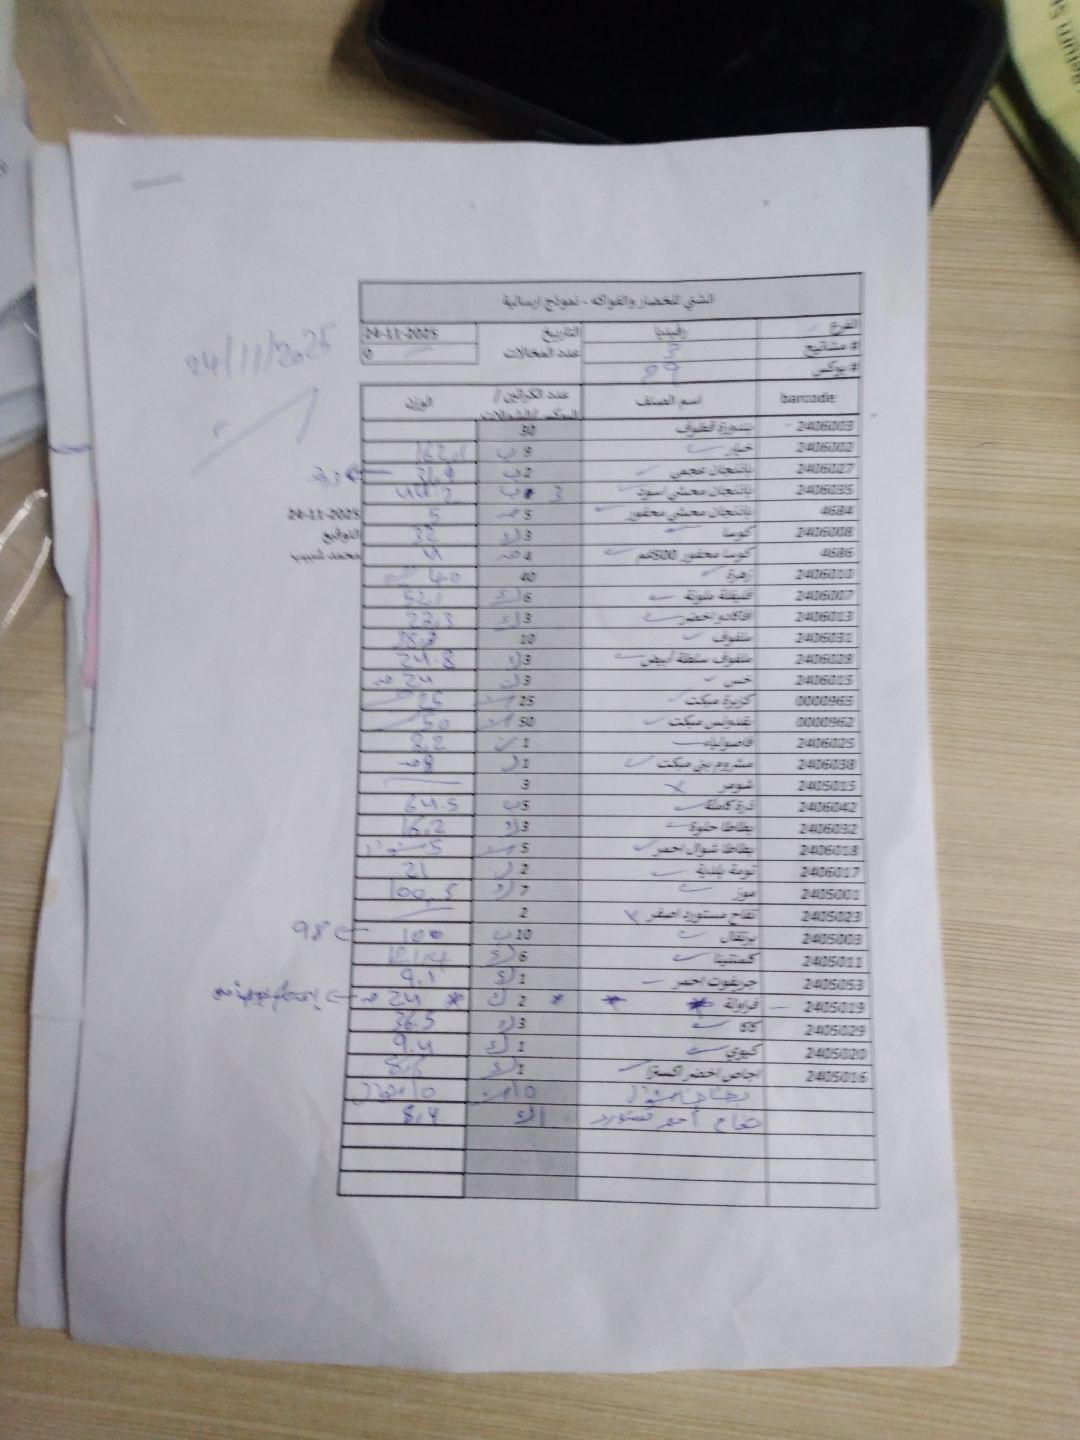 الشني للخضار والفواكه - نموذج ارسالية
الفرع رفيديا التاريخ 24-11-2025
# مشاتيح 3 عدد المخالات 0
# بوكس 89
24/11/2025
barcode اسم الصنف عدد الكراتين / البوكس /الشوالات الوزن
2406003 بندورة قطوف 30
2406002 خيار 9 ب 162,1
2406027 باذنجان عجمي 2 ب 31,9
2406035 باذنجان محشي اسود 3 ب 44.2
4684 باذنجان محشي محفور 5 5
24-11-2025
2406008 كوسا 3 32
التوقيع
4686 كوسا محفور 500غم 4 4
محمد شبيب
2406010 زهرة 40 40
2406007 فليفلة ملونة 6 52,1
2406013 افاكادو اخضر 3 22,3
2406031 ملفوف 10
2406028 ملفوف سلطة ابيض 3 24.8
2406015 خس 3 24
0000965 كزبرة ميكت 25 25
0000962 بقدونس ميكت 50 50
2406025 فاصولياء 1 8,2
2406038 مشروم بني ميكت 1 8
2405015 شومر 3
2406042 ذرة كاملة 5 ب 64.5
2406032 بطاطا حلوة 3 16,2
2406018 بطاطا شوال احمر 5 5
2406017 تومة بلدية 2 21
2405001 موز 7 100,5
2405023 تفاح مستورد اصفر 2
2405003 برتقال 10 ب 100 98
2405011 كلمنتينا 6
2405053 جريفوت احمر 1 9,1
2405019 فراولة 2 24
2405029 كاكا 3 36.5
2405020 كيوي 1 9.4
2405016 اجاص اخضر اكسترا 1 8,6
بطاطا شوال 10 10 شوال
تفاح أحمر مستورد 1 8,4